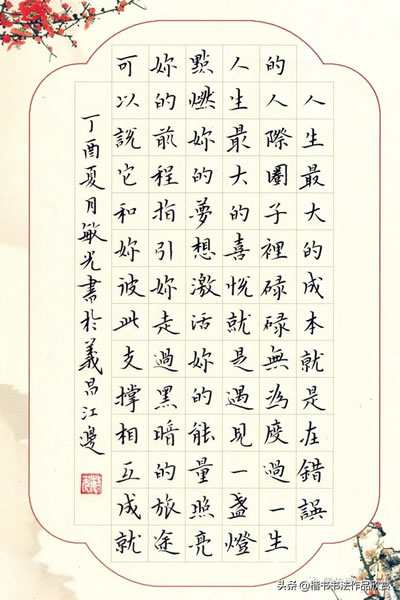 人生最大的成本就是在錯誤
的人際圈子裡碌碌無為度過一生
人生最大的喜悅就是遇見一盞燈
點燃妳的夢想激活妳的能量照亮
妳的前程指引妳走過黑暗的旅途
可以說它和妳彼此支撐相互成就
丁酉夏月敏光書於義昌江邊
头条 @楷书书法作品欣赏